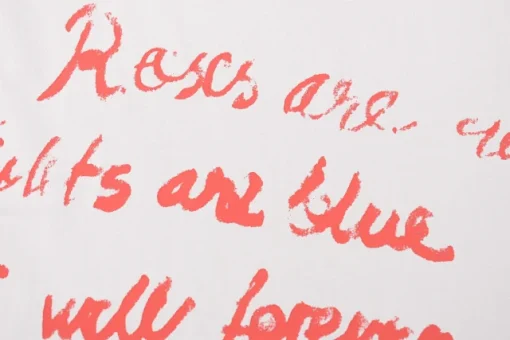 Roses are re
ights are blue
I will forever